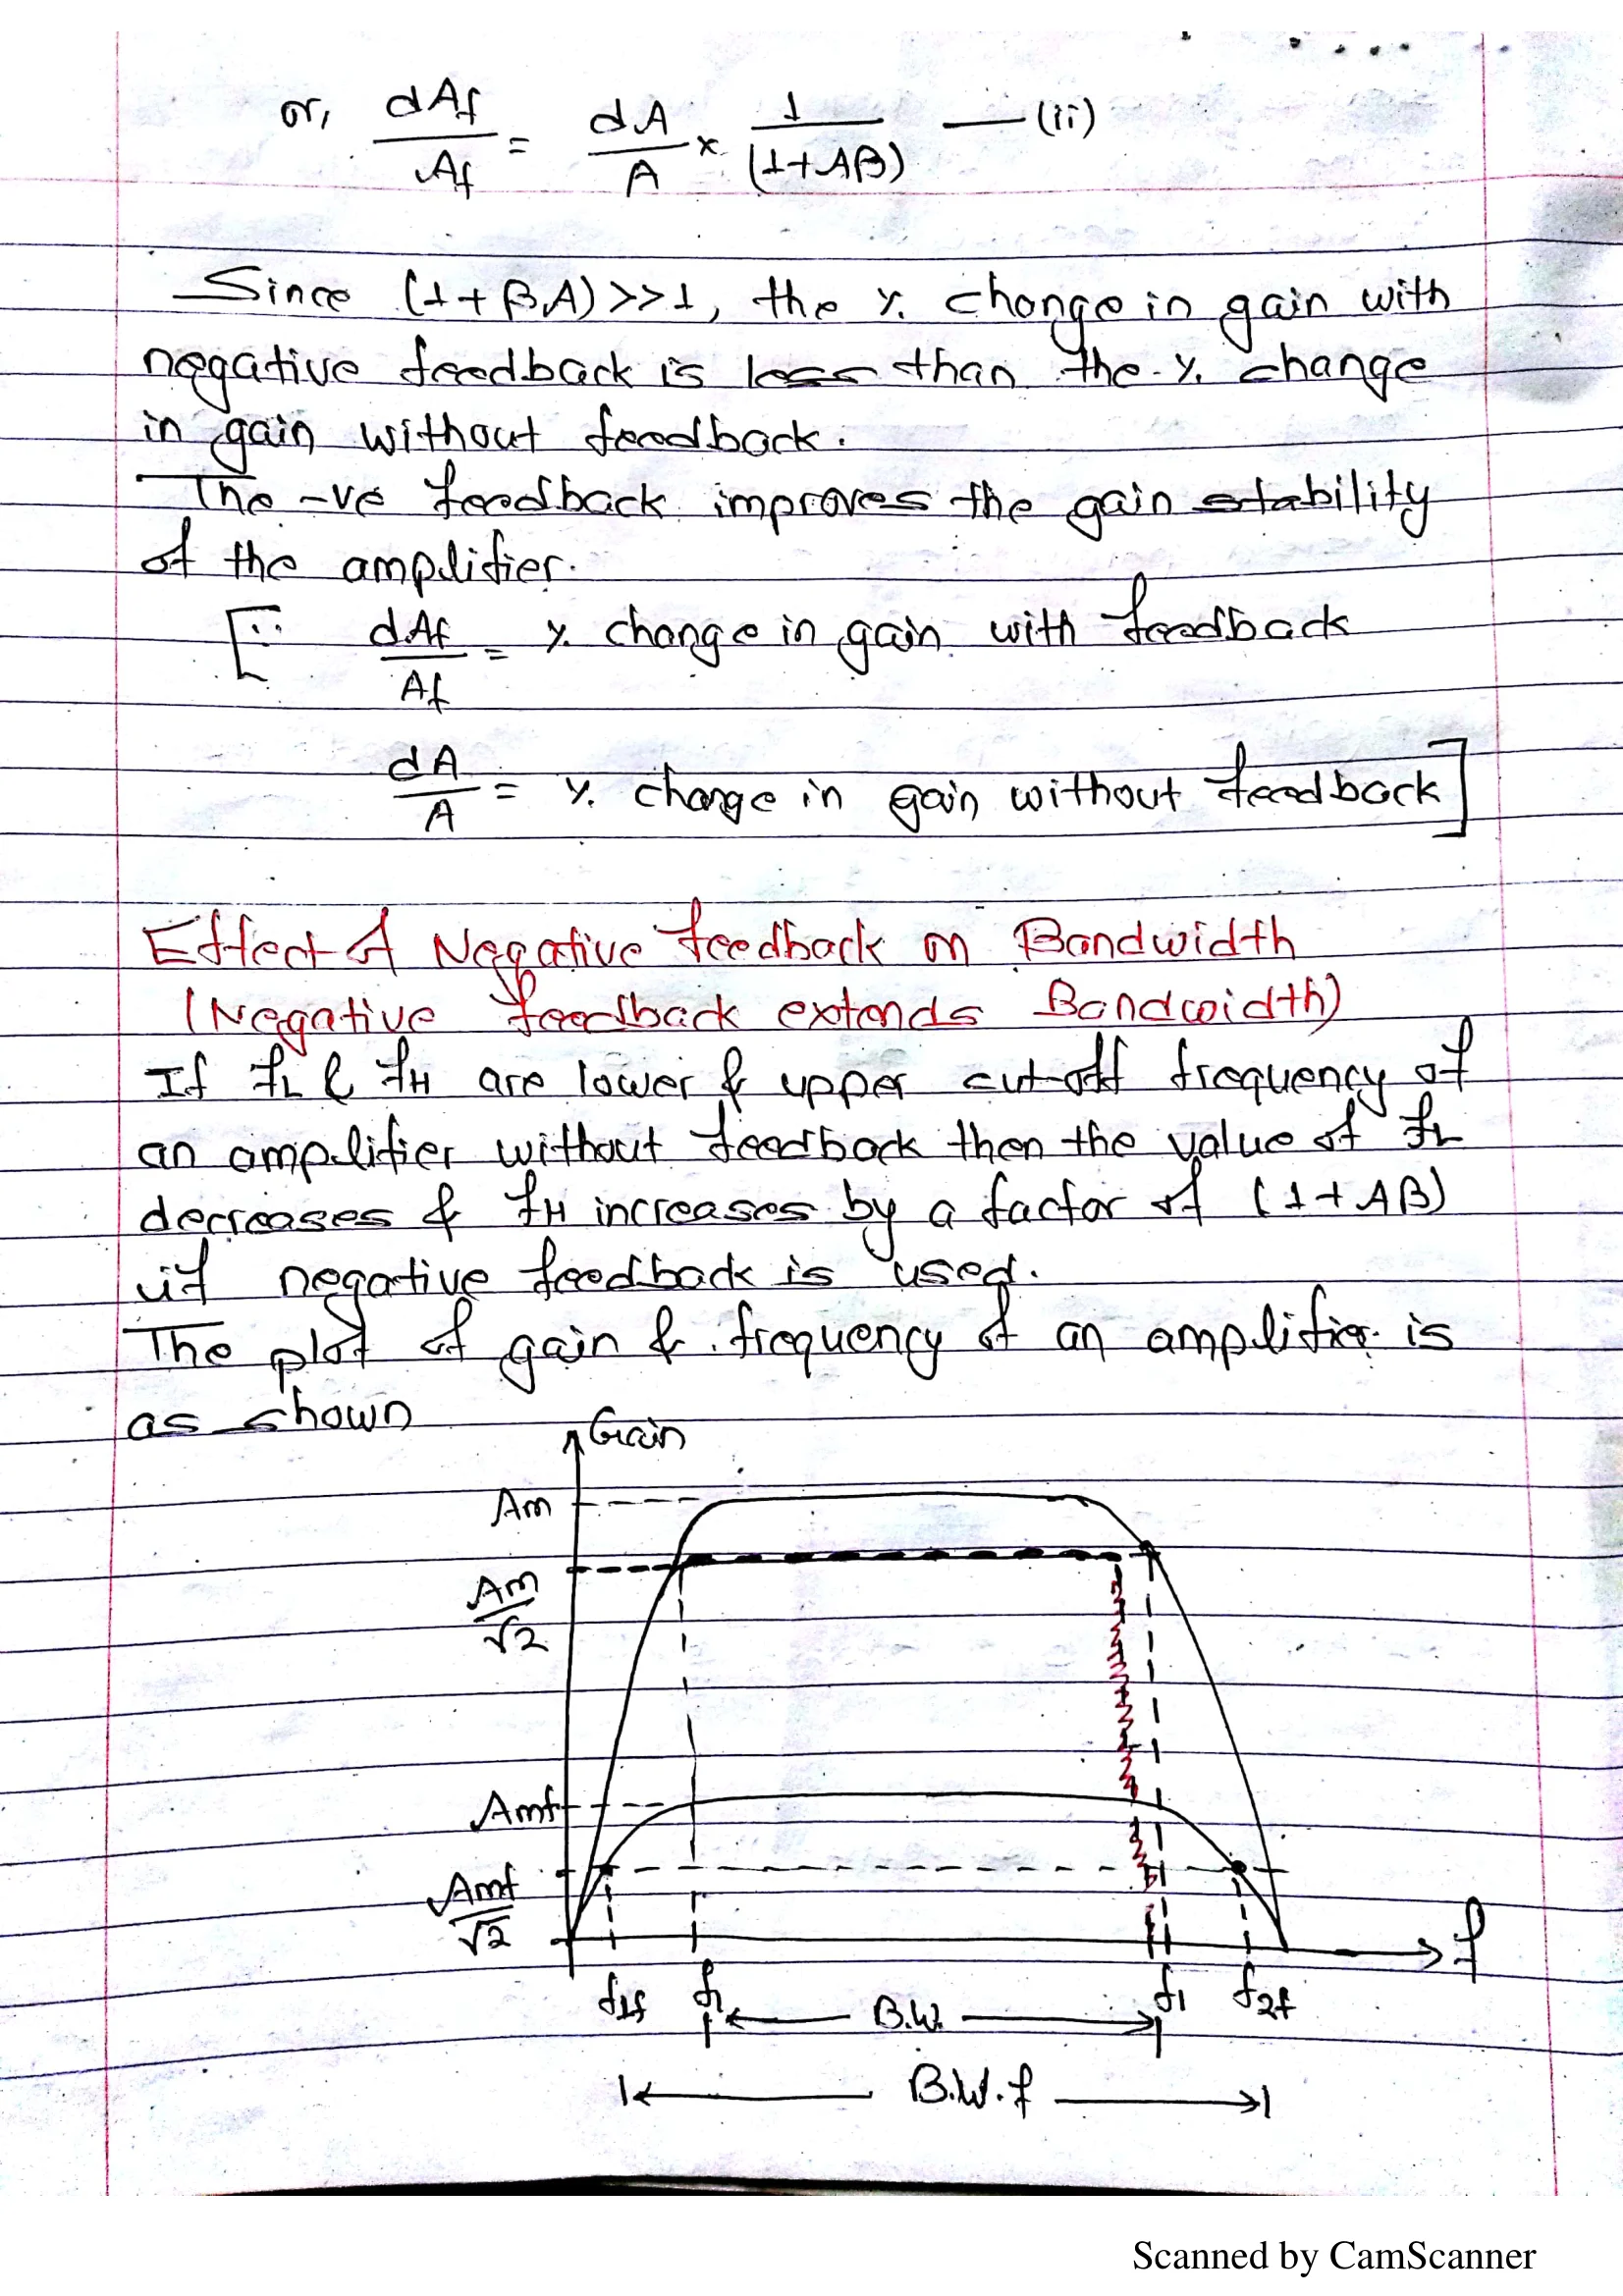 or, dAf/Af = dA/A × 1/(1+AB) — (ii)
Since (1+BA)>>1, the % change in gain with
negative feedback is less than the % change
in gain without feedback.
The -ve feedback improves the gain stability
of the amplifier.
[∵ dAf/Af = % change in gain with feedback
dA/A = % change in gain without feedback]
Effect of Negative feedback on Bandwidth
(Negative feedback extends Bandwidth)
If fL & fH are lower & upper cut-off frequency of
an amplifier without feedback then the value of fL
decreases & fH increases by a factor of (1+AB)
if negative feedback is used.
The plot of gain & frequency of an amplifier is
as shown
Gain
Am
Am/√2
Amf
Amf/√2
f
f1f f1 f2f
B.W.
B.W.f
Scanned by CamScanner